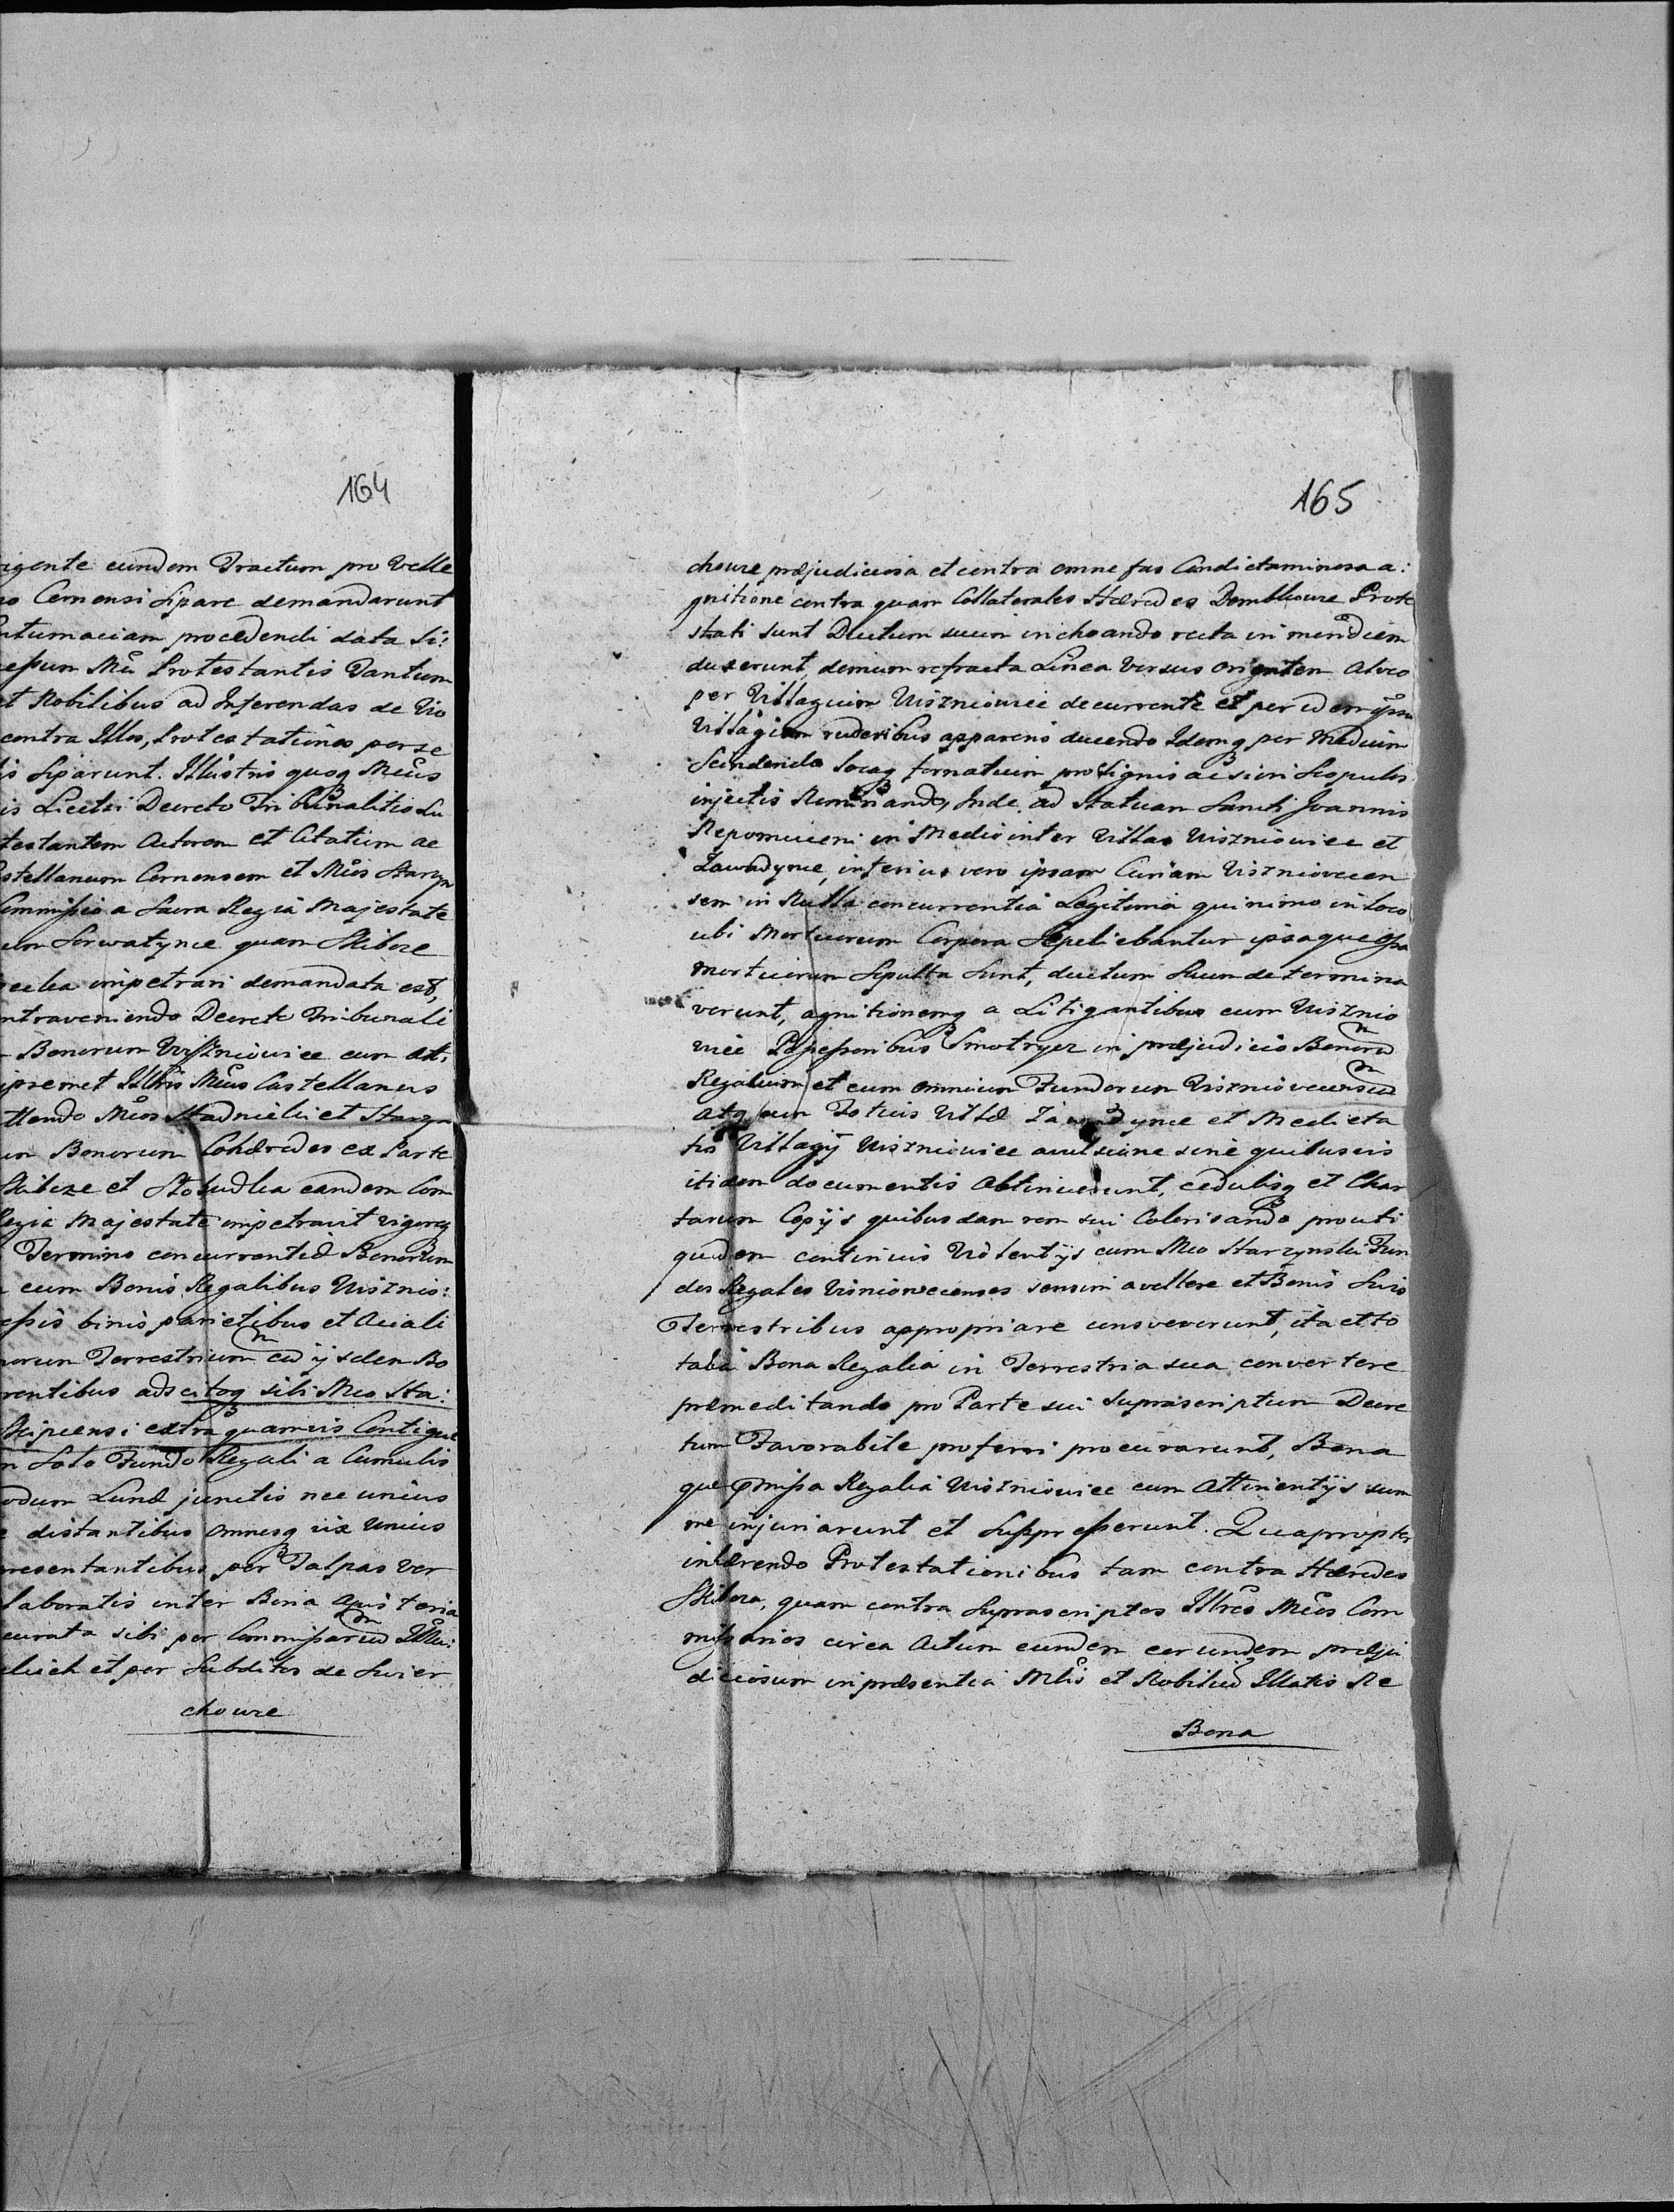 164
igente eundem Tractum pro Velle
Cernensi Sipare demandarunt
ntumaciam procedendi data Si:
Protestantis Tantum
et Nobilibus ad Inferendas de Vio
contra Illos, Protestationes per se
is Siparunt. Illustris quoq Mcus
is Licebri Decreto Tribunalitio Lu
testantem Actorem et Citatum ac
stellanum Cernensem et Mcos Starzyn
Commissio a Sacra Regia Majestate
Serwatynce quam Skibore
impetrari demandata est,
ntraveniendo Decreto Tribunali
Bonorum Wiszniowiee cum Att,
ipsemet Illris Mcus Castellanus
ttendo Mcos Stadnicki et Starzyn
Bonorum Cohæredes ex Parte
Skibize et Stobudka eandem Com
Regia Majestate impetravit vigoreq
Termino concurrentiæ Bonorum
cum Bonis Regalibus Viznio:
binis parietibus et Aciali
Terrestrium cu ijsdem Bo
rentibus adscitoq sibi Mco Sta:
Skipcensi extra quamvis Contigua
Solo Fundo Regali a Cumulis
Lunæ junctis nec unius
distantibus omnesq vix Unius
resentantibus per Talpas ver
laboratis inter Bona
curata sibi per Commissariu
et per Subditos de Swier
chowe
165
chowe præjudiciosa et contra omne fas Condictaminosa a:
gnitione contra quam Collaterales Hæredes Prote
stati sunt Ductum suum inchoando recta in meridiem
duxerunt, demum refracta Linea Versus Orientem alveo
per Villagium Viszniowiee decurrente et per idem
Villagium ruderibus apparens ducendo Idemq per Medium
Scindendo locaq pro signis
injectis Inde ad Statuam Sancti Joannis
Nepomuceni in Medio inter Villas Viszniowiee et
Zawadynce, inferius vero ipsam Curiam Viszniovecen
sem in Nulla concurrentia Legitima quinimo in loco
ubi Mortuorum Corpora Sepeliebantur ipsaque
Mortuorum Sepulta Sunt, ductum Suum determina
verunt, agnitionemq a Litigantibus cum Viznio
wiee Possessoribus Smotrycz in præjudicio Bonoru
Regalium et cum omnium Fundorum Viszniovecensiu
Atq cum Totius Villæ Zawadynce et Medieta
tis Villagij Viszniowiee avulsione sine quibusvis
itidem documentis Obtinuerunt, cedulisq et Char
tarum Copijs quibusdam rem sui Colorisando prouti
quidem continuis Violentijs cum Mco Starzynski Fun
dos Regales Visniowecenses sensim avellere et Bonis Suis
Terrestribus appropriare consveverunt, ita et to
talia Bona Regalia in Terrestria sua convertere
præmeditando pro Parte sui Suprascriptum Decre
tum Favorabile proferri procurarunt, Bona
que Regalia Viszniowiee cum Attinentijs sum
me injuriarunt et Suppresserunt. Quapropter
inhærendo Protestationibus tam contra Hæredes
Skibora, quam contra Suprascriptos Illres Mcos Com
missarios circa Actum eundem eorundem præju
diciosum in præsentia Mtis et Nobiliu Illatis Re
Bona